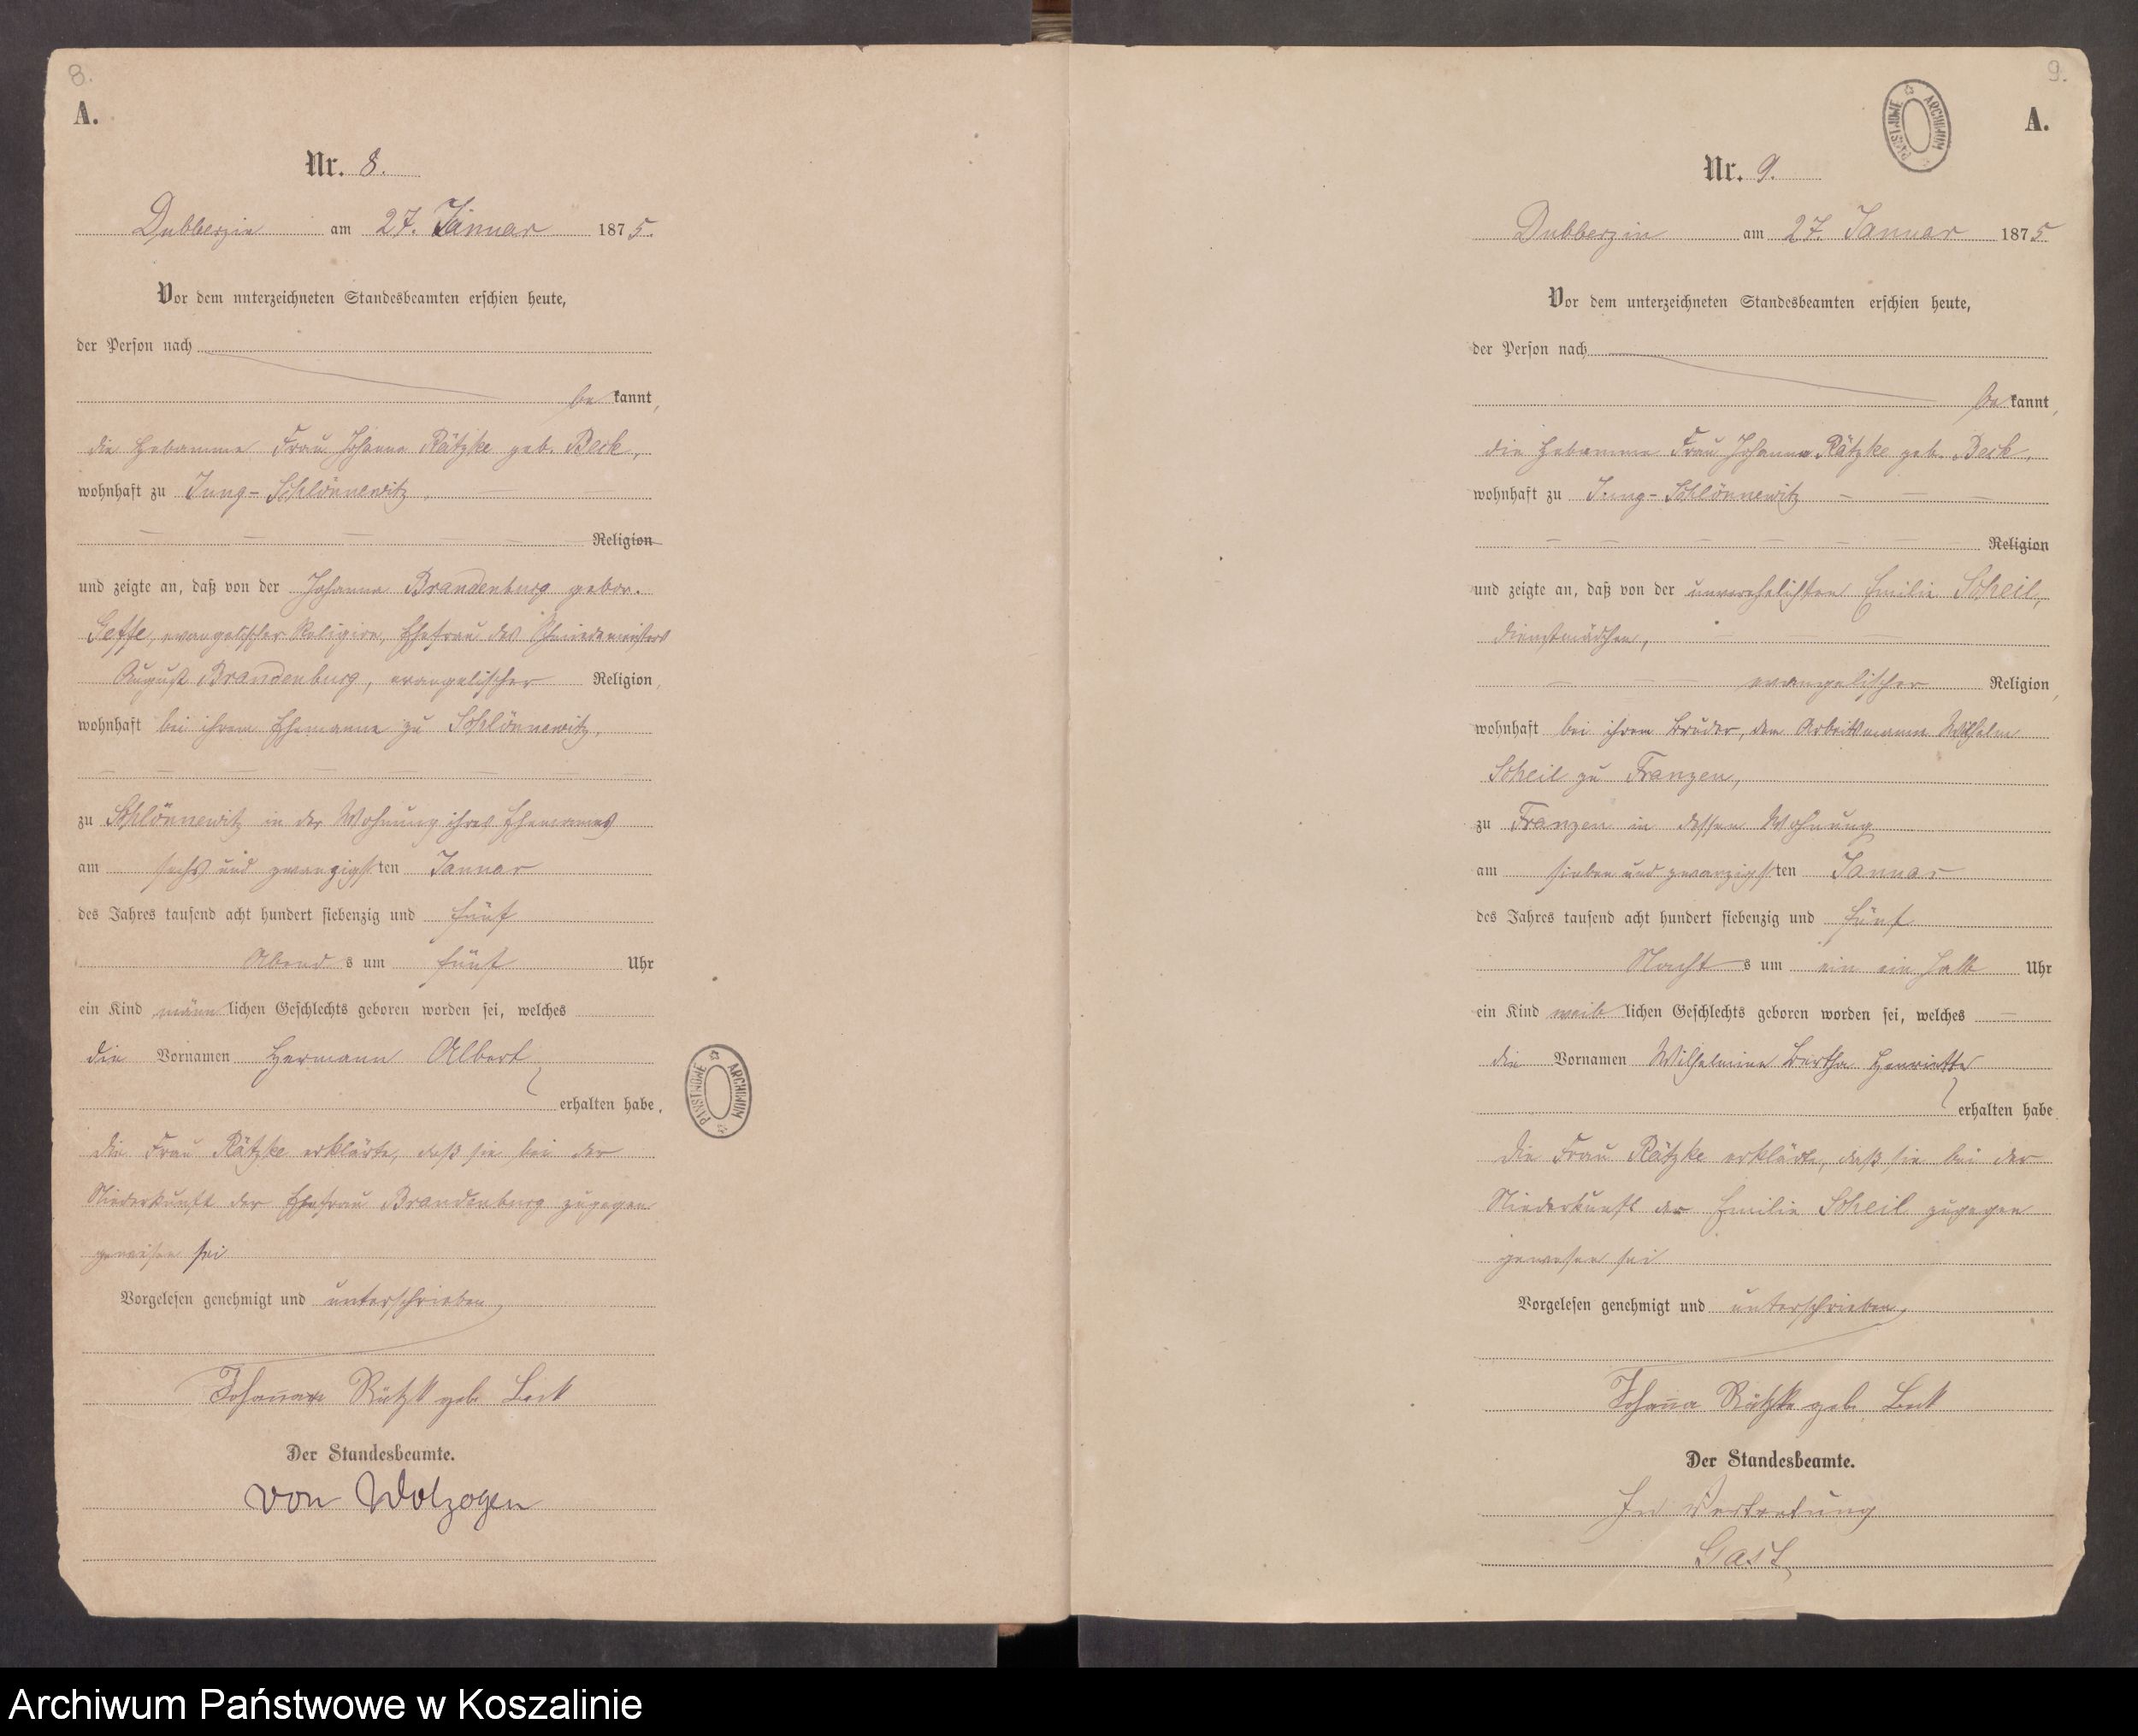 8.
A.
Nr. 8.
Dubberzin am 27. Januar 1875.
Vor dem unterzeichneten Standesbeamten erschien heute,
der Person nach
bekannt,
die Hebamme Frau Johanna Rätzke geb. Beck,
wohnhaft zu Jung-Schlönnewitz,
Religion
und zeigte an, daß von der Johanna Brandenburg gebor.
evangelischer Religion, Ehefrau des Schmiedemeisters
August Brandenburg, evangelischer Religion,
wohnhaft bei ihrem Ehemanne zu Schlönnewitz,
zu Schlönnewitz in der Wohnung ihres Ehemannes
am sechs und zwanzigsten Januar
des Jahres tausend acht hundert siebenzig und fünf
Abends um fünf Uhr
ein Kind männlichen Geschlechts geboren worden sei, welches
die Vornamen Hermann Albert
erhalten habe.
Die Frau Rätzke erklärte, daß sie bei der
Niederkunft der Ehefrau Brandenburg zugegen
gewesen sei
Vorgelesen genehmigt und unterschrieben,
Johanna Rätzk geb. Beck
Der Standesbeamte.
von Wolzogen
ARCHIWUM PAŃSTWOWE
9.
A.
ARCHIWUM PAŃSTWOWE
Nr. 9.
Dubberzin am 27. Januar 1875
Vor dem unterzeichneten Standesbeamten erschien heute,
der Person nach
bekannt,
die Hebamme Frau Johanna Rätzke geb. Beck,
wohnhaft zu Jung-Schlönnewitz
Religion
und zeigte an, daß von der unverehelichten Emilie Scheil,
Dienstmädchen,
evangelischer Religion,
wohnhaft bei ihrem Bruder, dem Arbeitsmann Wilhelm
Scheil zu Franzen,
zu Franzen in dessen Wohnung
am sieben und zwanzigsten Januar
des Jahres tausend acht hundert siebenzig und fünf
Nachts um ein ein halb Uhr
ein Kind weiblichen Geschlechts geboren worden sei, welches
die Vornamen Wilhelmine Bertha Henriette
erhalten habe.
Die Frau Rätzke erklärte, daß sie bei der
Niederkunft der Emilie Scheil zugegen
gewesen sei
Vorgelesen genehmigt und unterschrieben,
Johanna Rätzke geb. Beck
Der Standesbeamte.
In Vertretung
Gast
Archiwum Państwowe w Koszalinie